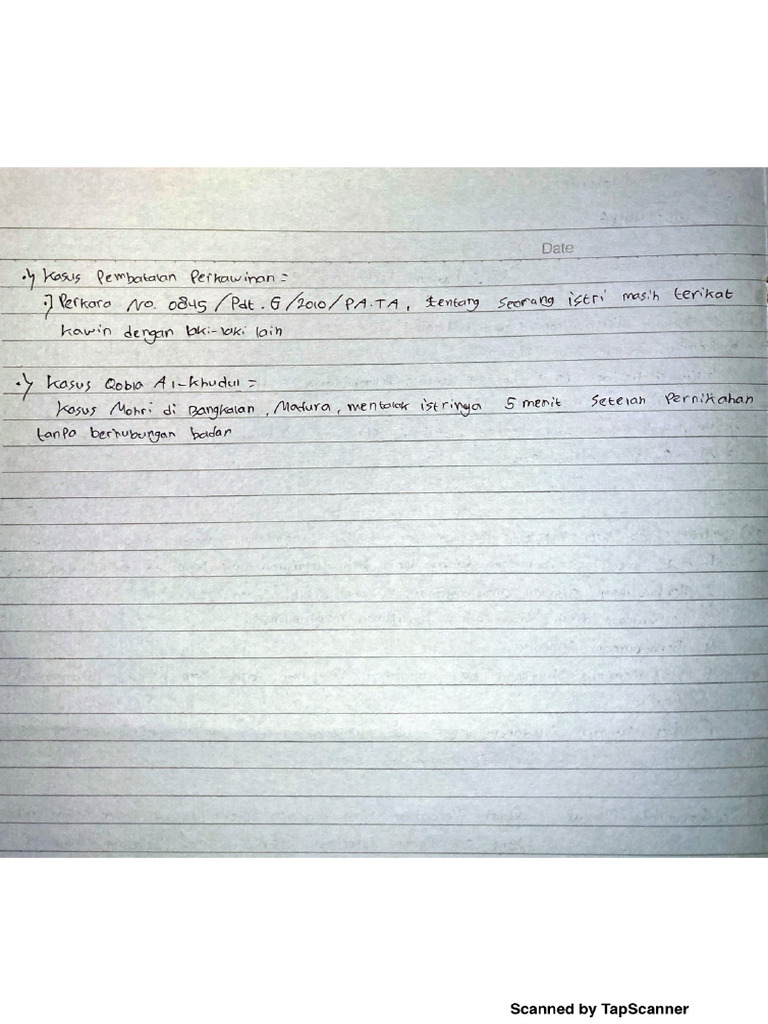 Date
•) Kasus Pembatalan Perkawinan =
•] Perkara No. 0845/Pdt.G/2010/PA.TA, tentang seorang istri masih terikat
kawin dengan laki-laki lain
•) Kasus Qobla Al-Khudul =
Kasus Mohri di Bangkalan, Madura, mentalak istrinya 5 menit setelah Pernikahan
tanpa berhubungan badan
Scanned by TapScanner